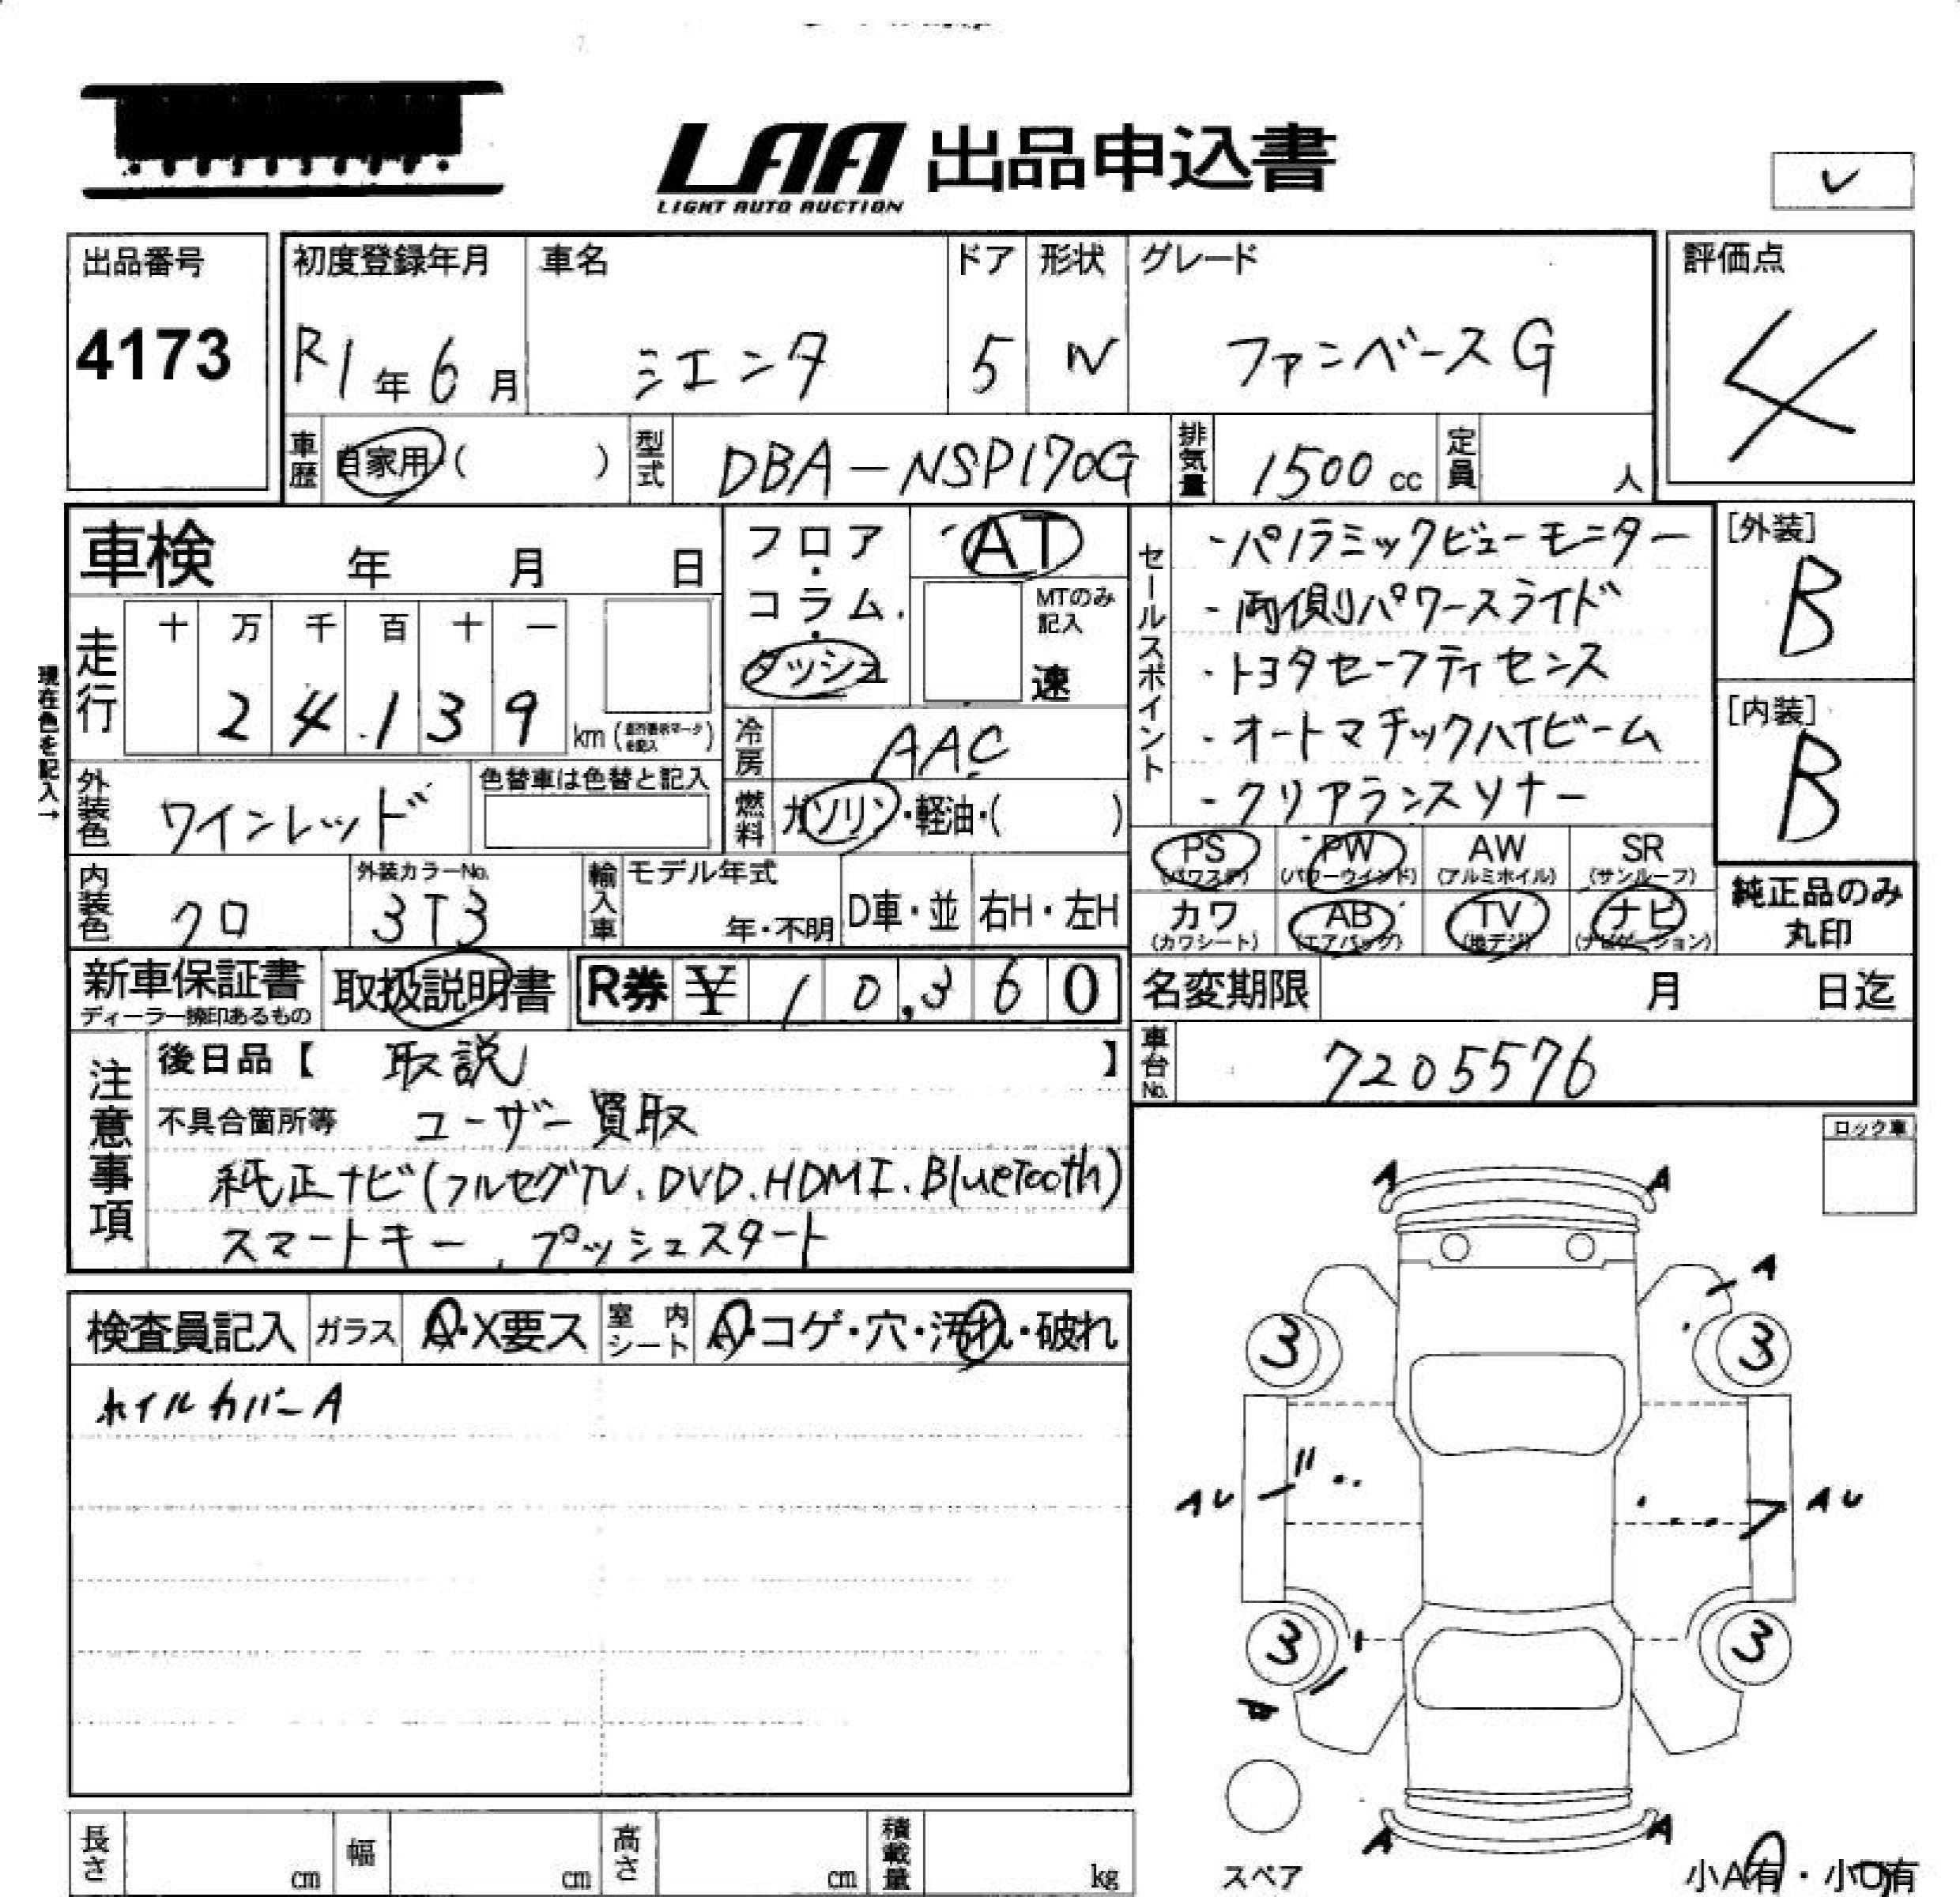 LAA 出品申込書
LIGHT AUTO AUCTION
レ
出品番号
4173
初度登録年月
R1年6月
車名
シエンタ
ドア
5
形状
N
グレード
ファンベースG
評価点
4
車歴 自家用 ( )
型式 DBA-NSP170G
排気量 1500cc
定員 人
車検 年 月 日
現在色を記入→
走行
十 万 千 百 十 一
24.139 km
フロア・コラム・ダッシュ
AT
MTのみ記入
速
冷房 AAC
燃料 ガソリン・軽油・( )
セールスポイント
・パノラミックビューモニター
・両側パワースライド
・トヨタセーフティセンス
・オートマチックハイビーム
・クリアランスソナー
[外装]
B
[内装]
B
外装色 ワインレッド
色替車は色替と記入
内装色 クロ
外装カラーNo.
3T3
輸入車
モデル年式
年・不明
D車・並
右H・左H
PS
(パワステ)
PW
(パワーウインド)
AW
(アルミホイル)
SR
(サンルーフ)
カワ
(カワシート)
AB
(エアバッグ)
TV
(地デジ)
ナビ
(ナビゲーション)
純正品のみ
丸印
新車保証書
ディーラー捺印あるもの
取扱説明書
R券 ¥ 10,360
名変期限 月 日迄
車台No. 7205576
注意事項
後日品【 取説 】
不具合箇所等 ユーザー買取
純正ナビ(フルセグTV、DVD、HDMI、BlueTooth)
スマートキー、プッシュスタート
ロック車
検査員記入
ガラス A・X要ス
室内シート A・コゲ・穴・汚れ・破れ
ホイルカバーA
A A
A
3 3
AU AU
3 3
A A
スペア
小A有・小U有
長さ cm
幅 cm
高さ cm
積載量 kg